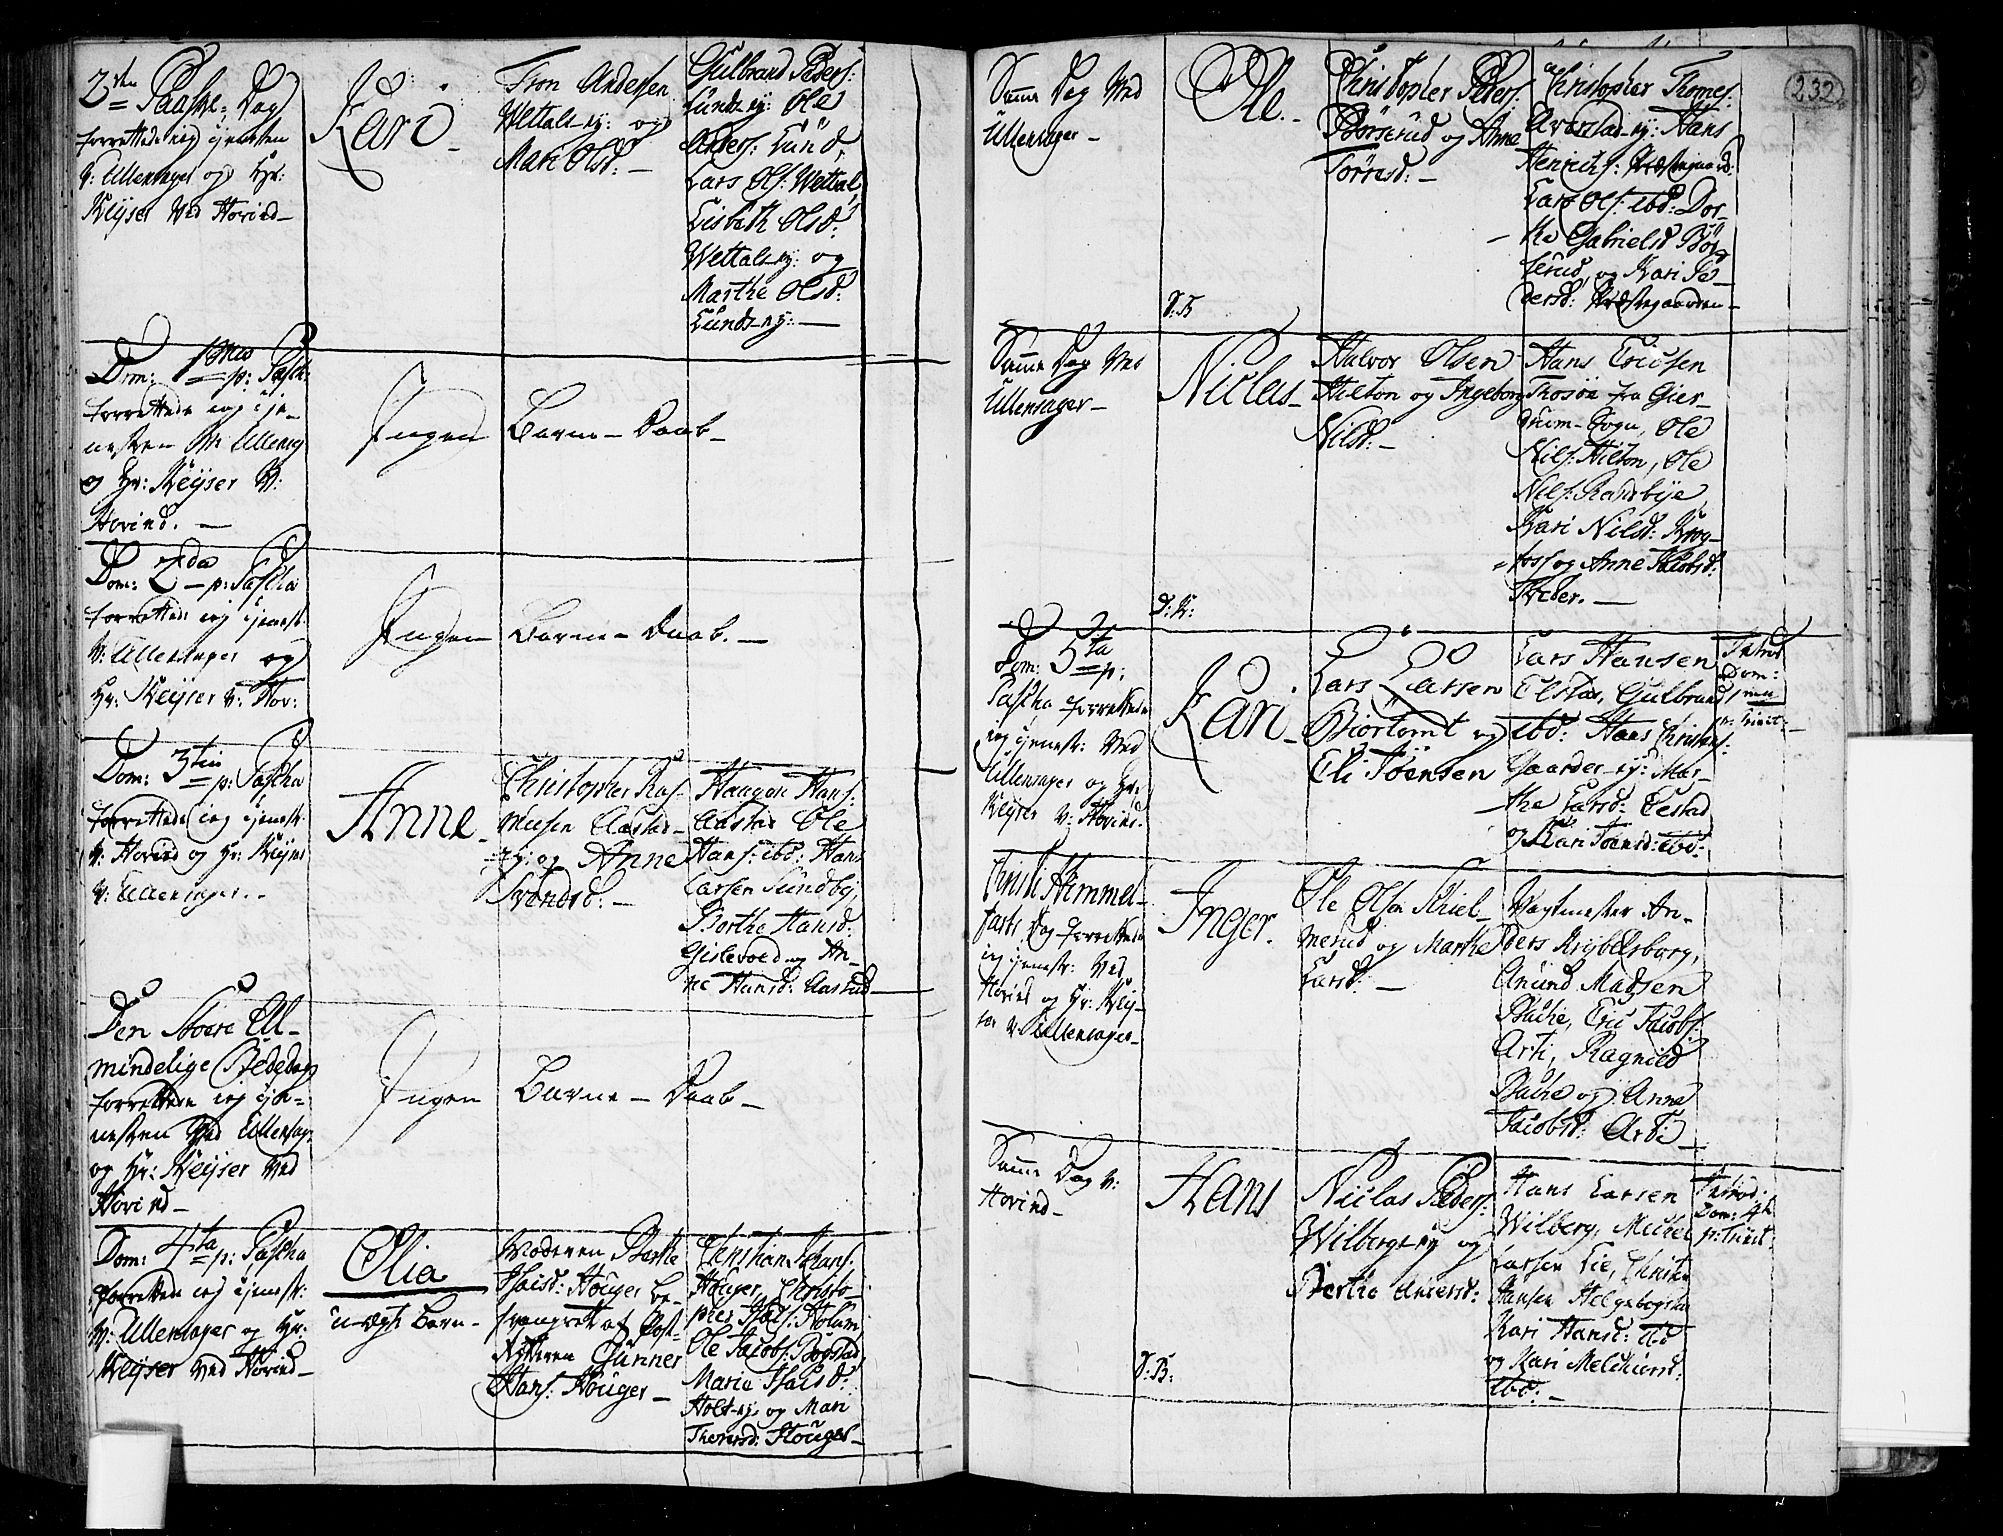 2den Paaske-Dag
forrettede ieg tjenesten
v: Ullensager og Hr:
Keÿser ved Hovind
Kari
Tron Andersen
Wettals-ej: og
Mari Olsd:
Gulbrand Peders:
Lunds-ej: Ole
Anders: Lund,
Lars Ols: Wettal,
Lisbeth Olsd:
Wettals-ej: og
Marthe Olsd:
Lunds-ej:
Dom: 1mus p: Pasch:
forrettede ieg tje-
nesten ved Ullensag
og Hr: Keÿser v:
Hovind.
Ingen Barne-Daab
Dom: 2da p: Pascha
forrettede ieg tjenest:
v: Ullensager og
Hr: Keÿser v: Hov:
Ingen Barne-Daab.
Dom: 3tia p: Pascha
forrettede ieg tjenest:
v: Hovind og Hr: Keÿser
v: Ullensager.
Anne
Christopher Ras-
musen Aastad-
ej: og Anne
Svendsd:
Haagen Hans:
Aastad Ole
Hans: ibd: Hans
Larsen Sundbÿ,
Berthe Hansd:
Gislevold og An-
ne Hansd: Aastad
Den Store All-
mindelige Bededag
forrettede ieg tje-
nesten ved Ullensag:
og Hr: Keÿser ved
Hovind
Ingen Barne-Daab
Dom: 4ta p: Pascha
forrettede ieg tjenest:
v: Ullensager og Hr:
Keÿser ved Hovind
Olia
u-ægt Barn
Moderen Berthe
Isaisd: Houger be-
svangret af Post-
Rÿtteren Gunner
Hans: Houger
Christian Johans:
Houger, Christo-
pher Hans: Holum,
Ole Jacobs: Bogstad
Marie Isaisd:
Holt-ej: og Mari
Thoresd: Houger
232
Samme Dag ved
Ullensager
Ole.
D: B
Christopher Peders:
Børserud og Anne
Torresd:
Christopher Thomes:
Averstad-ej: Hans
Henrichs: Præstegaard:
Lars Ols: ibd: Dor-
the Gabrielsd Bør-
serud, og Kari Pe-
dersd: Præstegaarden
Samme Dag ved
Ullensager
Niclas
D: K:
Halvor Olsen
Hilton og Ingeborg
Nilsd:
Hans Ericsen
Trosøe fra Gier-
drum-Sogn, Ole
Nils: Hilton, Ole
Nils: Randbÿe
Kari Nilsd: Krog-
foss og Anne Jacobsd:
Dom: 5ta p:
Pascha forrettede
ieg tjenest: ved
Ullensager og Hr:
Keÿser v: Hovind.
Kari
Lars Larsen
Biørtomt og
Eli Joensen
Lars Hansen
Elstad, Gulbrand
ibd: Hans Christens:
Gaarder-ej: Mar-
the Larsd: Elstad
og Kari Joensd: ibd:
Introd:
Dom:
1ma
p: Trinit:
Christi Himmel-
farts Dag forrettede
ieg tjenest: ved
Hovind og Hr: Keÿ-
ser v: Ullensager
Inger.
Ole Olsen Kiel-
merud og Marthe
Larsd:
Vagtmester An-
ders Krÿbelsborg,
Amund Madsen
Bache, Eric Jacobs:
Arti, Ragnild
Bache og Anne
Jacobsd: Arti
Samme Dag v:
Hovind
Hans
D: B:
Niclas Peders:
Wilbergs-ej og
Berthe Andersd:
Hans Larsen
Wilberg, Michel
Larsen Lie, Christen
Hansen Helgebogstad
Kari Hansd: ibd
og Kari Melchiorsd:
ibd:
Introd:
Dom: 4ta
p: Trinit: